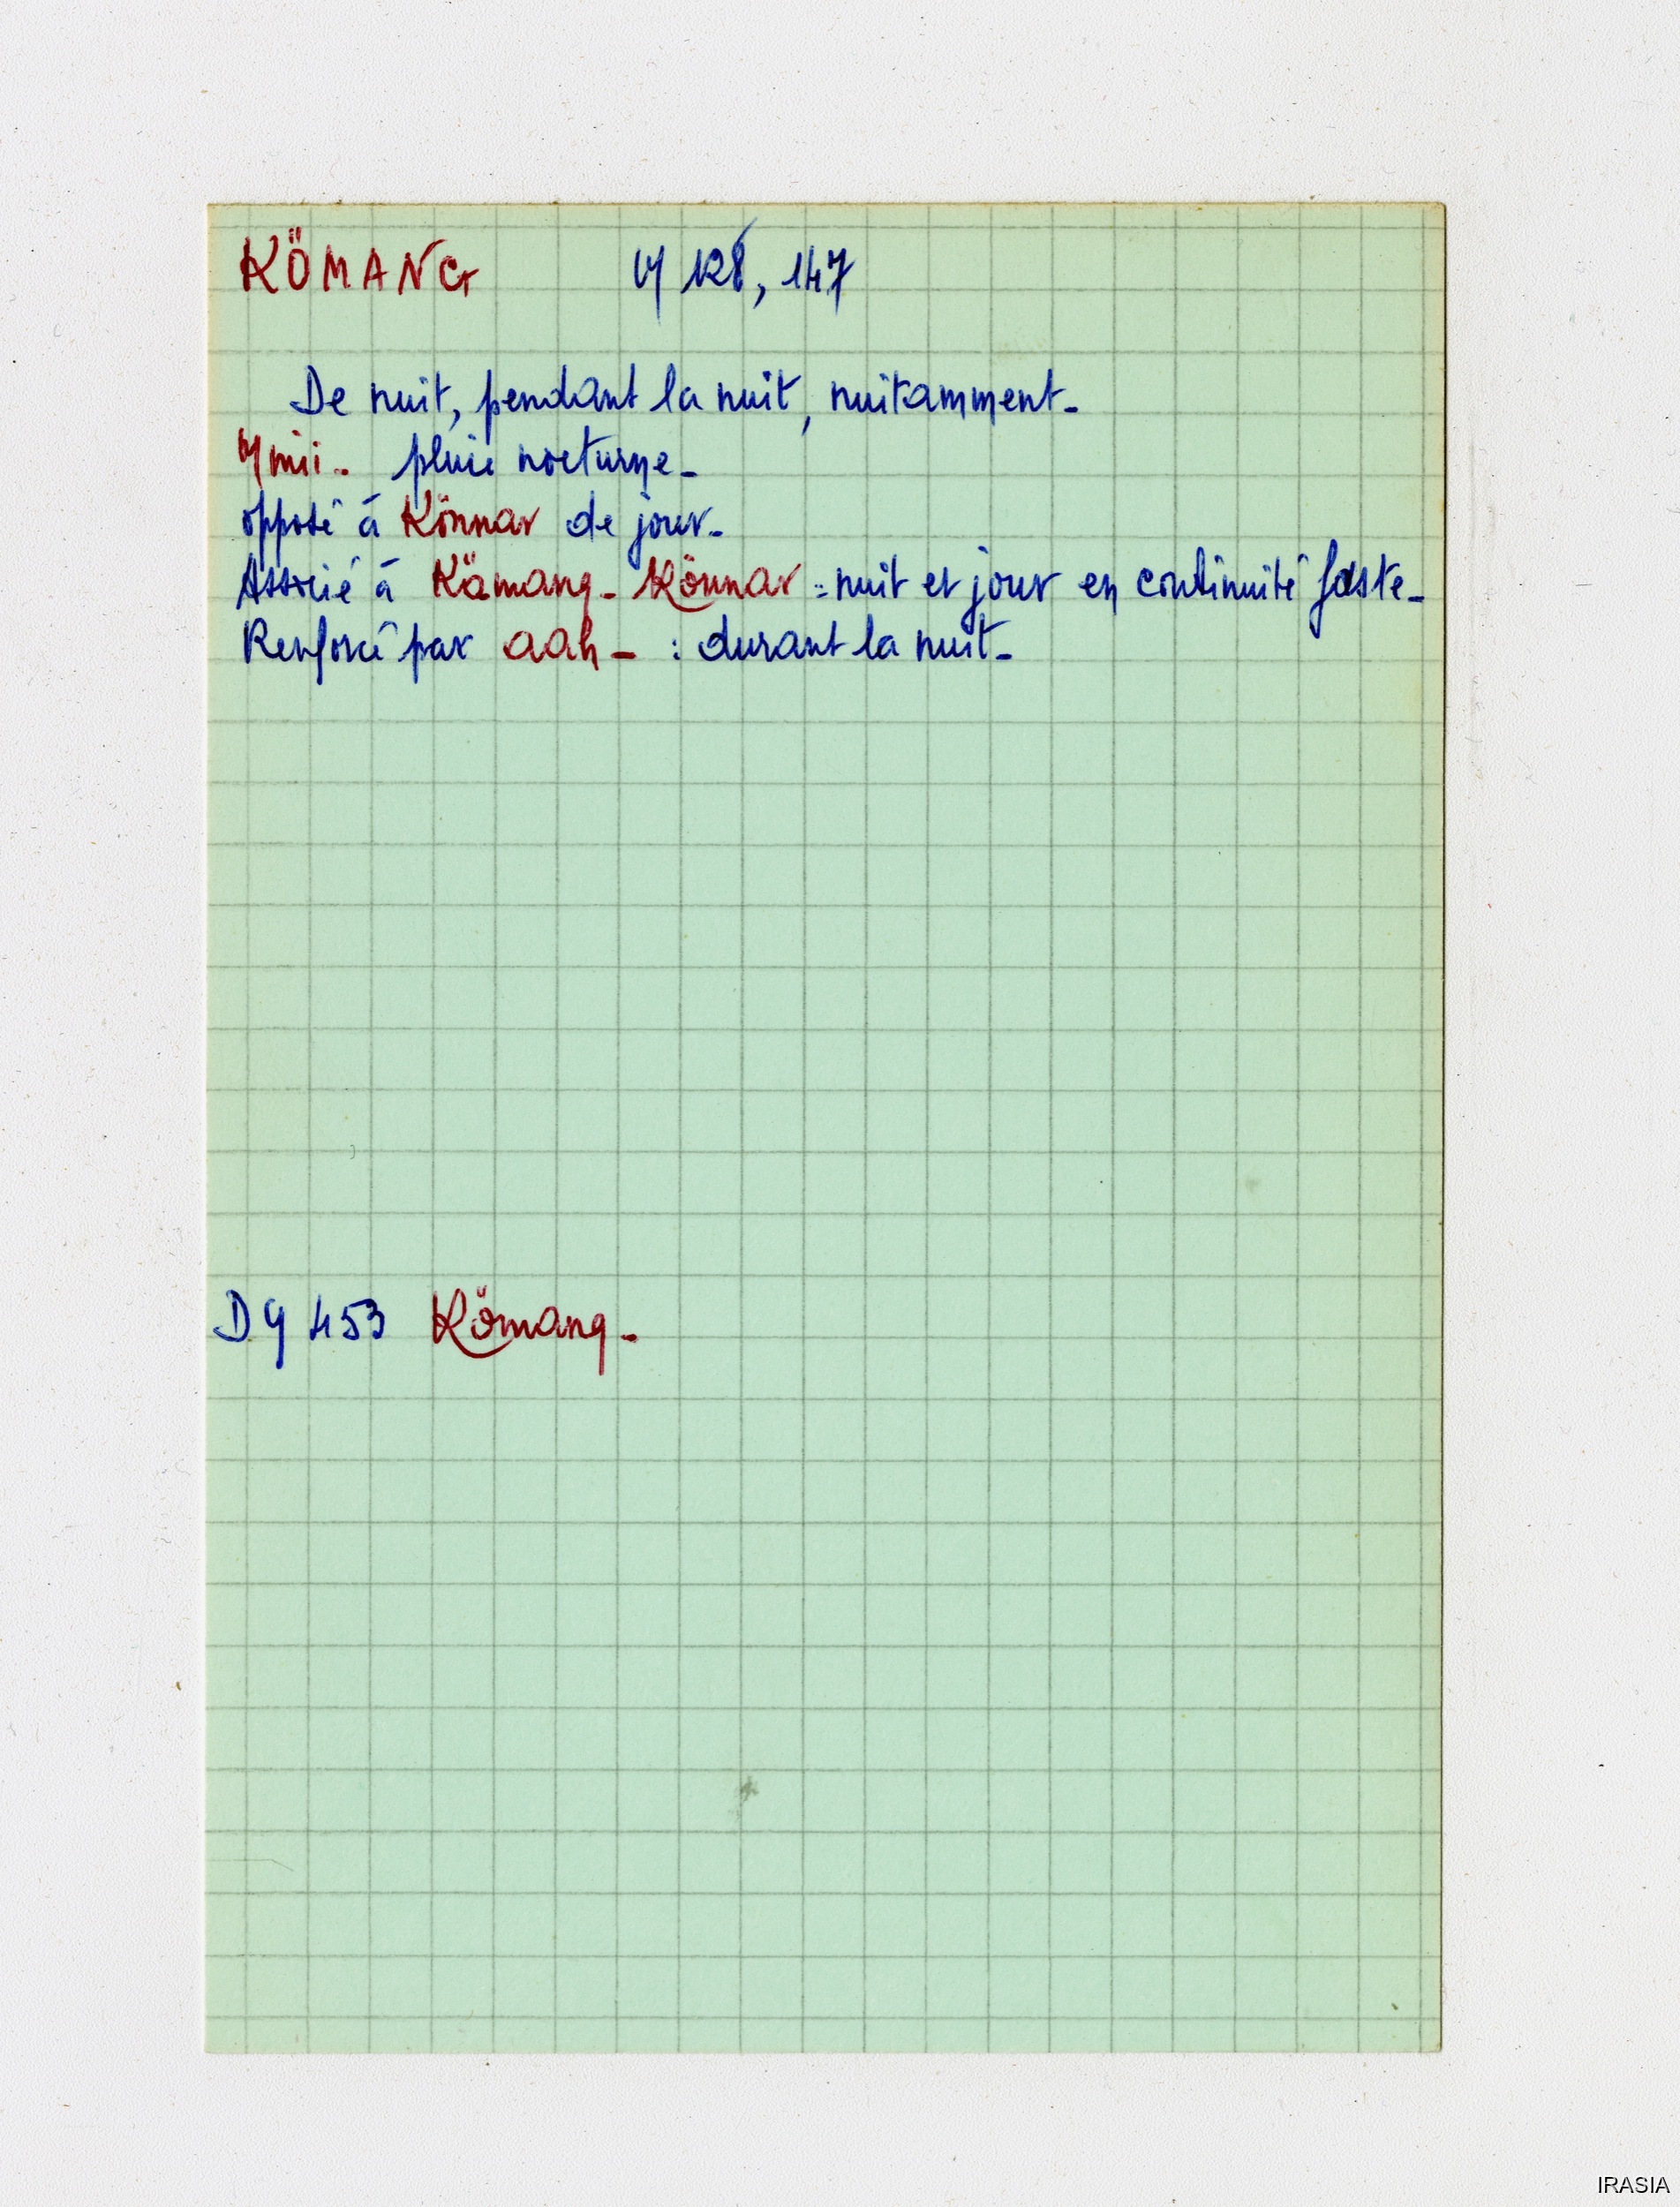 KÖMANG 128, 147
De nuit, pendant la nuit, nuitamment.
mii. pluie nocturne.
opposé à Könnar de jour.
Associé à Kömang. Könnar : nuit et jour en continuité faste.
Renforcé par aah. : durant la nuit.
453 Kömang.
IRASIA